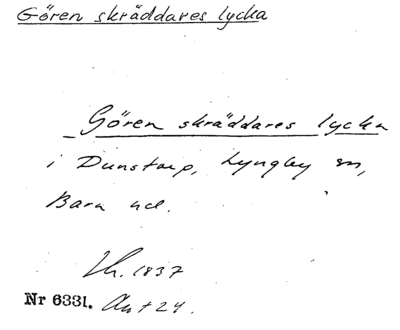 Gören skräddares lycka
Gören skräddares lycka
i Dunstorp, Lyngby sn,
Bara hd.
Lh. 1837
Nr 6331. Akt 24.